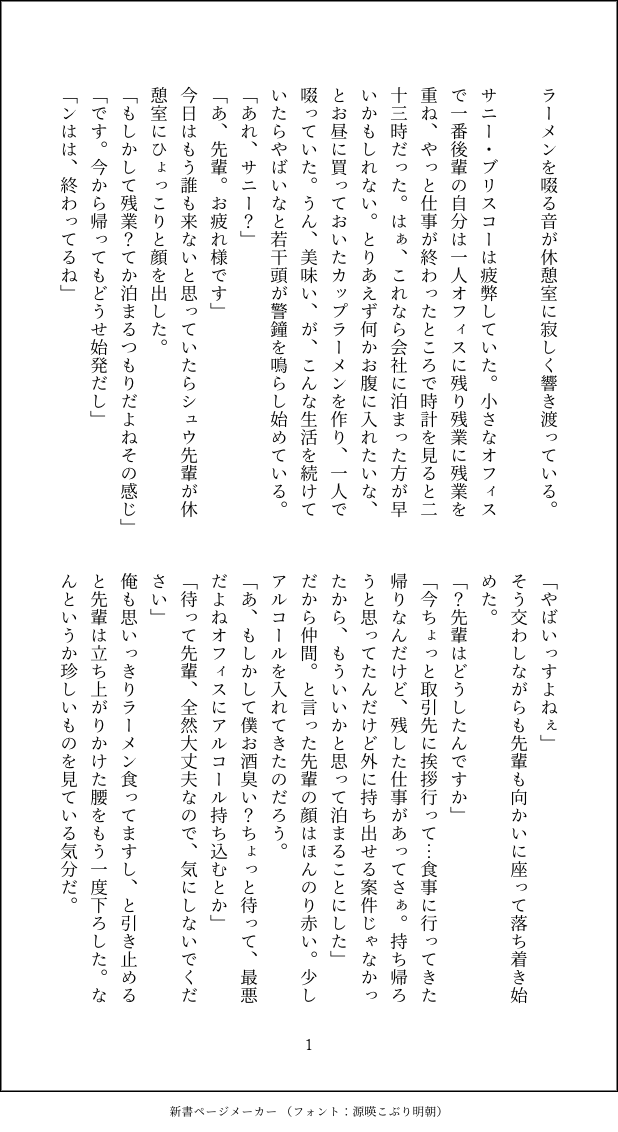 ラーメンを啜る音が休憩室に寂しく響き渡っている。
サニー・ブリスコーは疲弊していた。小さなオフィス
で一番後輩の自分は一人オフィスに残り残業に残業を
重ね、やっと仕事が終わったところで時計を見ると二
十三時だった。はぁ、これなら会社に泊まった方が早
いかもしれない。とりあえず何かお腹に入れたいな、
とお昼に買っておいたカップラーメンを作り、一人で
啜っていた。うん、美味い、が、こんな生活を続けて
いたらやばいなと若干頭が警鐘を鳴らし始めている。
「あれ、サニー？」
「あ、先輩。お疲れ様です」
今日はもう誰も来ないと思っていたらシュウ先輩が休
憩室にひょっこりと顔を出した。
「もしかして残業？てか泊まるつもりだよねその感じ」
「です。今から帰ってもどうせ始発だし」
「ンはは、終わってるね」
「やばいっすよねぇ」
そう交わしながらも先輩も向かいに座って落ち着き始
めた。
「？先輩はどうしたんですか」
「今ちょっと取引先に挨拶行って…食事に行ってきた
帰りなんだけど、残した仕事があってさぁ。持ち帰ろ
うと思ってたんだけど外に持ち出せる案件じゃなかっ
たから、もういいかと思って泊まることにした」
だから仲間。と言った先輩の顔はほんのり赤い。少し
アルコールを入れてきたのだろう。
「あ、もしかして僕お酒臭い？ちょっと待って、最悪
だよねオフィスにアルコール持ち込むとか」
「待って先輩、全然大丈夫なので、気にしないでくだ
さい」
俺も思いっきりラーメン食ってますし、と引き止める
と先輩は立ち上がりかけた腰をもう一度下ろした。な
んというか珍しいものを見ている気分だ。
1
新書ページメーカー（フォント：源暎こぶり明朝）